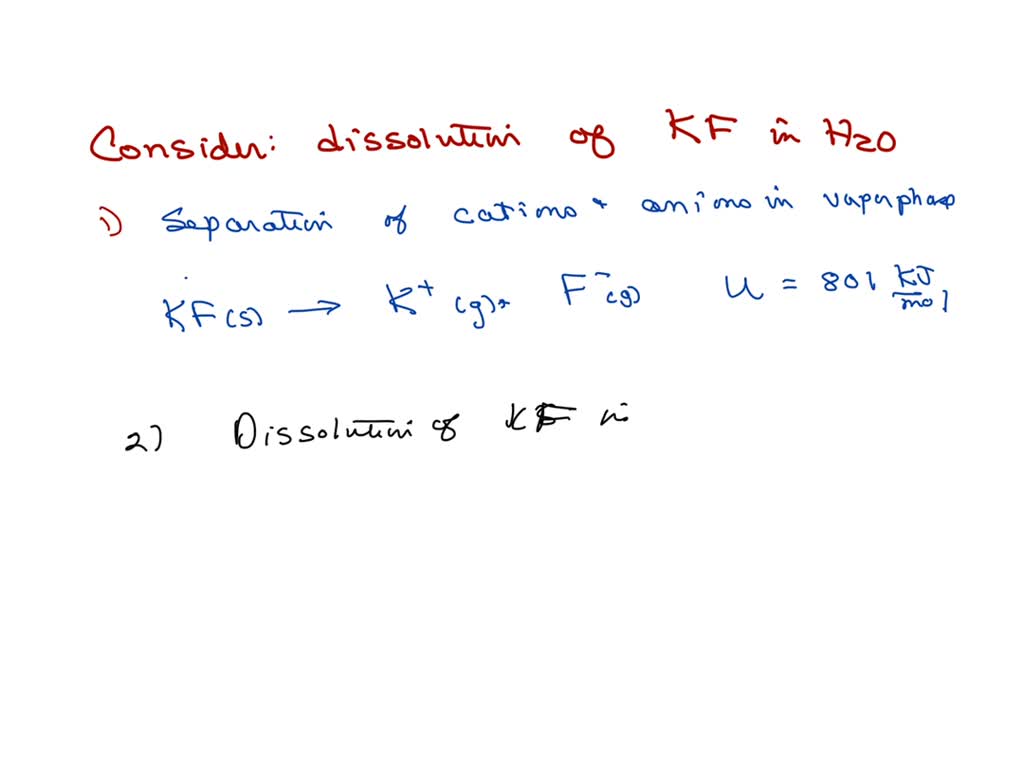 Consider: dissolution of KF in H2O
1) Separation of cations + anions in vapor phase
KF(s) → K+ (g) + F-(g) U = 801 kJ/mol
2) Dissolution of KF in